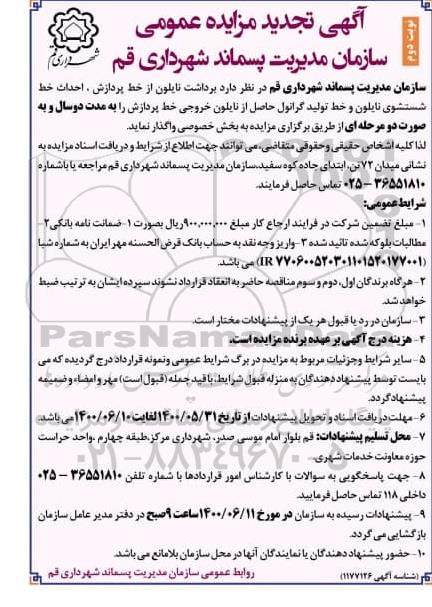 آگهی تجدید مزایده عمومی
سازمان مدیریت پسماند شهرداری قم
نوبت دوم
شهرداری قم
سازمان مدیریت پسماند شهرداری قم در نظر دارد برداشت نایلون از خط پردازش ، احداث خط
شستشوی نایلون و خط تولید گرانول حاصل از نایلون خروجی خط پردازش را به مدت دوسال و به
صورت دو مرحله ای از طریق برگزاری مزایده به بخش خصوصی واگذار نماید.
لذا کلیه اشخاص حقیقی وحقوقی متقاضی، می توانند جهت اطلاع از شرایط و دریافت اسناد مزایده به
نشانی میدان ۷۲ تن، ابتدای جاده کوه سفید،سازمان مدیریت پسماند شهرداری قم مراجعه یا باشماره
۳۶۵۵۱۸۱۰ – ۰۲۵ تماس حاصل فرمایند.
شرایط عمومی:
۱- مبلغ تضمین شرکت در فرایند ارجاع کار مبلغ ۹۰۰,۰۰۰,۰۰۰ریال بصورت ۱-ضمانت نامه بانکی۲-
مطالبات بلوکه شده تائید شده ۳-واریز وجه نقد به حساب بانک قرض الحسنه مهر ایران به شماره شبا
(IR ۷۷۰۶۰۰۵۲۰۳۰۱۱۰۱۵۲۰۱۷۷۰۰۱) می باشد.
۲-هرگاه برندگان اول، دوم و سوم مناقصه حاضر به انعقاد قرارداد نشوند سپرده ایشان به ترتیب ضبط
خواهد شد.
۳-سازمان در رد یا قبول هر یک از پیشنهادات مختار است.
۴- هزینه درج آگهی بر عهده برنده مزایده است.
۵-سایر شرایط وجزئیات مربوط به مزایده در برگ شرایط عمومی ونمونه قرارداد درج گردیده که می
بایست توسط پیشنهاد دهندگان به منزله قبول شرایط، باقید جمله (قبول است) مهر و امضاء و ضمیمه
پیشنهاد گردد.
۶- مهلت دریافت اسناد و تحویل پیشنهادات از تاریخ ۱۴۰۰/۰۵/۳۱ لغایت ۱۴۰۰/۰۶/۱۰ می باشد.
۷- محل تسلیم پیشنهادات: قم بلوار امام موسی صدر، شهرداری مرکز،طبقه چهارم ،واحد حراست
حوزه معاونت خدمات شهری.
۸- جهت پاسخگویی به سوالات با کارشناس امور قراردادها با شماره تلفن ۳۶۵۵۱۸۱۰ – ۰۲۵
داخلی ۱۱۸ تماس حاصل فرمایید.
۹- پیشنهادات رسیده به سازمان در مورخ ۱۴۰۰/۰۶/۱۱ ساعت ۹ صبح در دفتر مدیر عامل سازمان
بازگشایی می گردد.
۱۰-حضور پیشنهاد دهندگان یا نمایندگان آنها در محل سازمان بلامانع می باشد.
روابط عمومی سازمان مدیریت پسماند شهرداری قم
(شناسه آگهی ۱۱۷۷۱۲۶)
ParsNamadData
۰۲۱-۸۸۳۴۹۶۷۰-۵